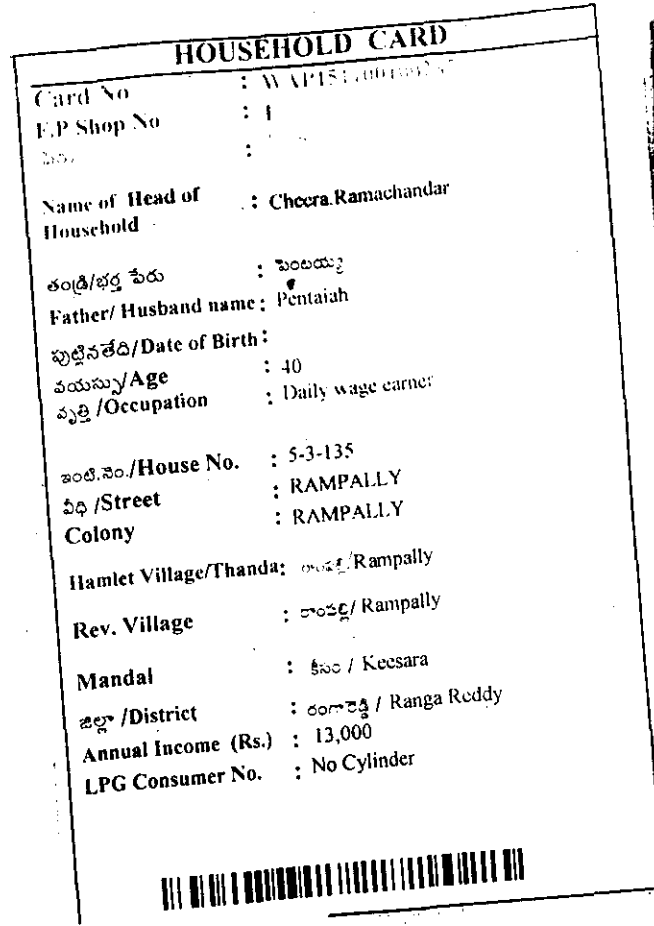 HOUSEHOLD CARD
Card No :
F.P Shop No : 1
:
Name of Head of : Cheera.Ramachandar
Household
తండ్రి/భర్త పేరు : పెంటయ్య
Father/ Husband name : Pentaiah
పుట్టినతేది/Date of Birth :
వయస్సు/Age : 40
వృత్తి /Occupation : Daily wage earner
ఇంటి.నెం./House No. : 5-3-135
వీధి /Street : RAMPALLY
Colony : RAMPALLY
Hamlet Village/Thanda: రాంపల్లి/Rampally
Rev. Village : రాంపల్లి/ Rampally
Mandal : కీసర / Keesara
జిల్లా /District : రంగారెడ్డి / Ranga Reddy
Annual Income (Rs.) : 13,000
LPG Consumer No. : No Cylinder